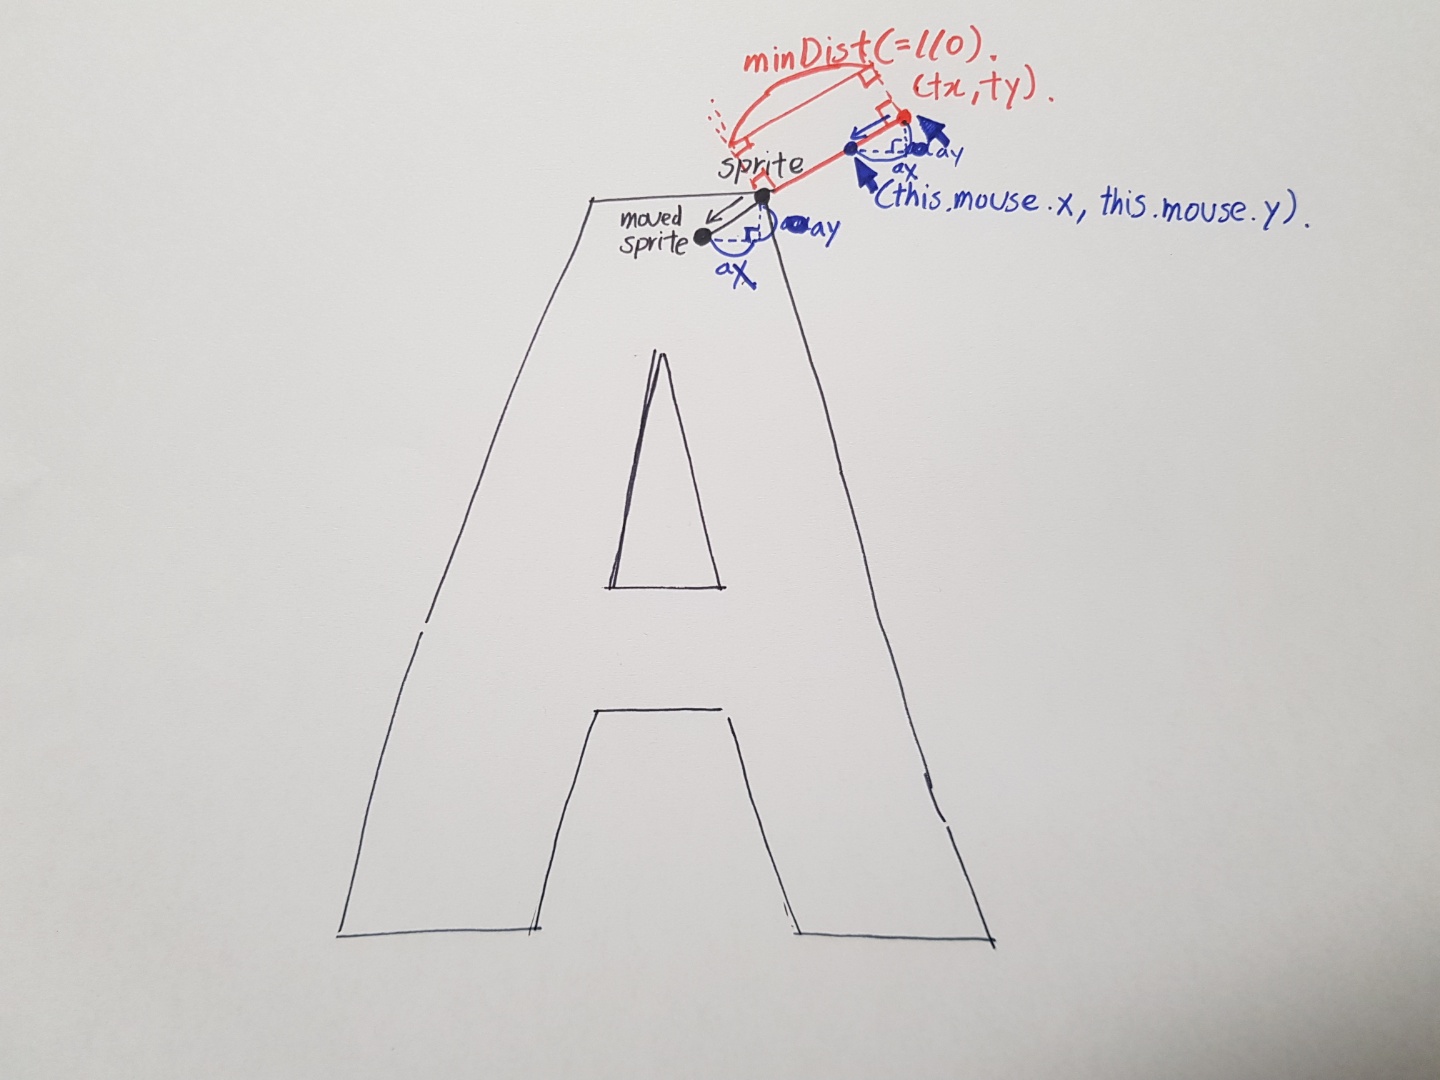 minDist(=110).
(tx, ty).
sprite
ay
ax
(this.mouse.x, this.mouse.y).
moved
sprite
ay
ax